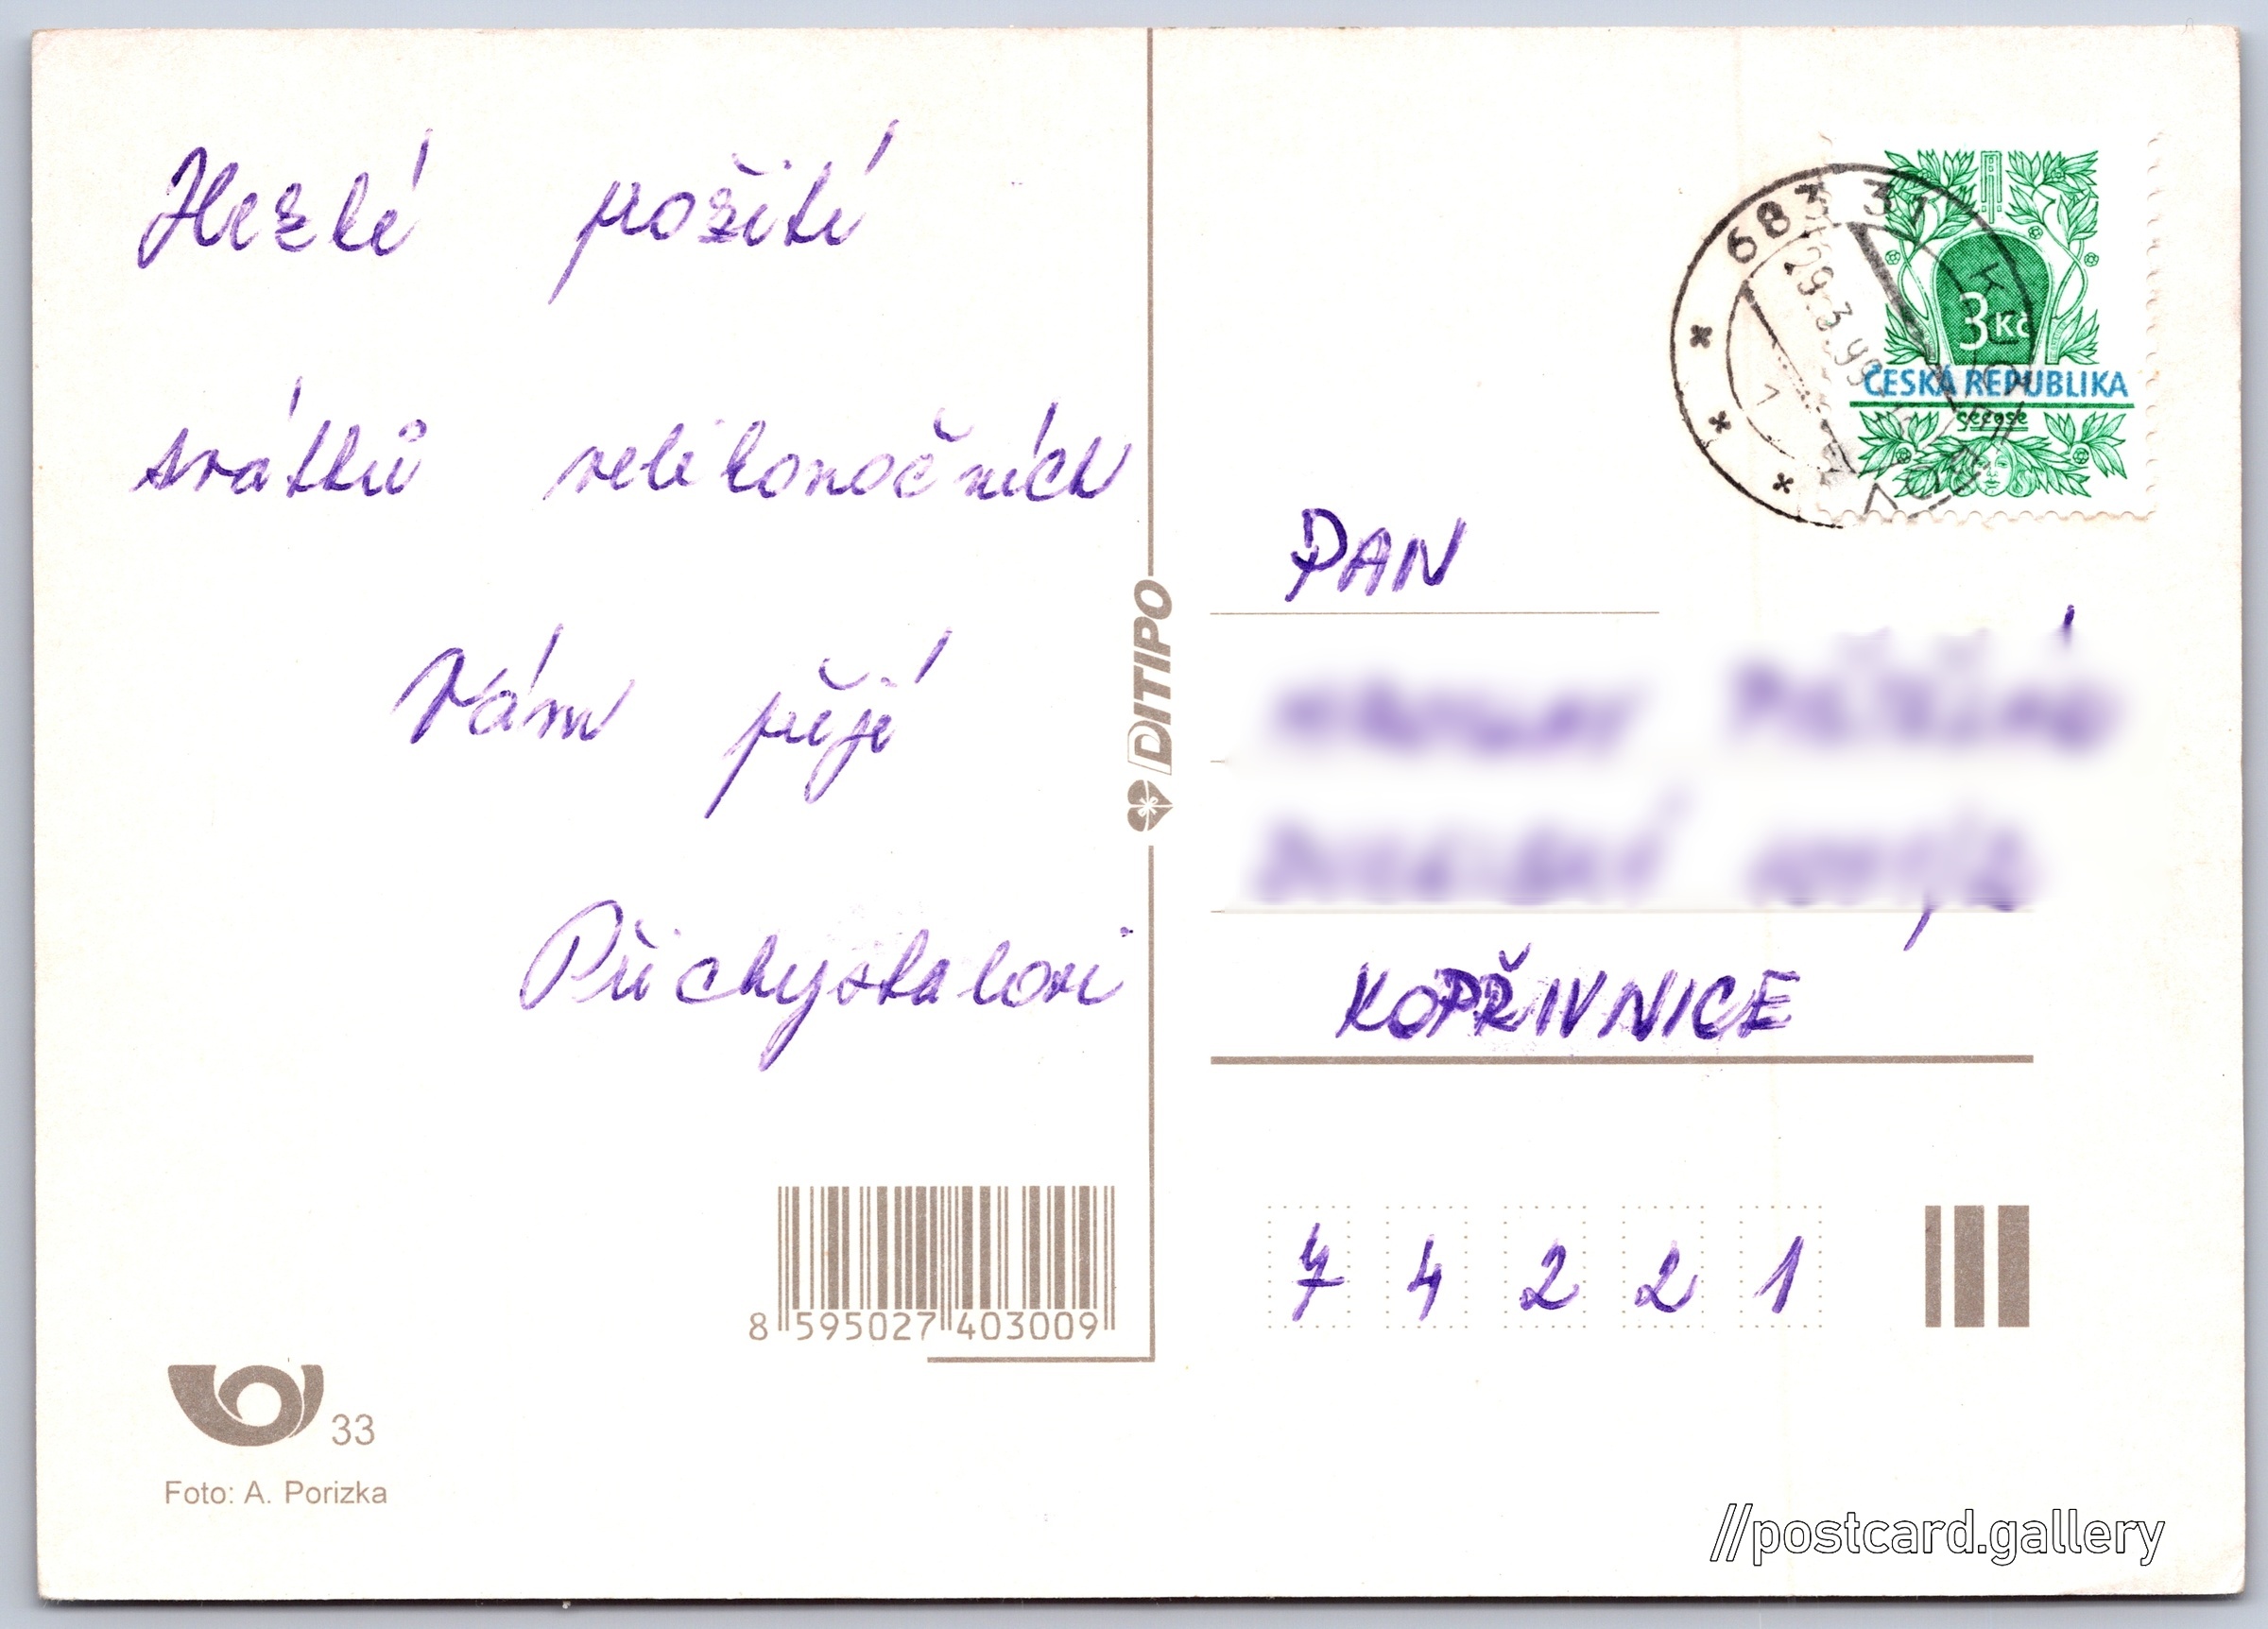 Hezké požití
svátků velikonočních
Vám přejí
Přichystalovi
DITIPO
8 595027 403009
33
Foto: A. Porizka
683 31
29.3.99
3 Kč
ČESKÁ REPUBLIKA
PAN
KOPŘIVNICE
7 4 2 2 1
//postcard.gallery